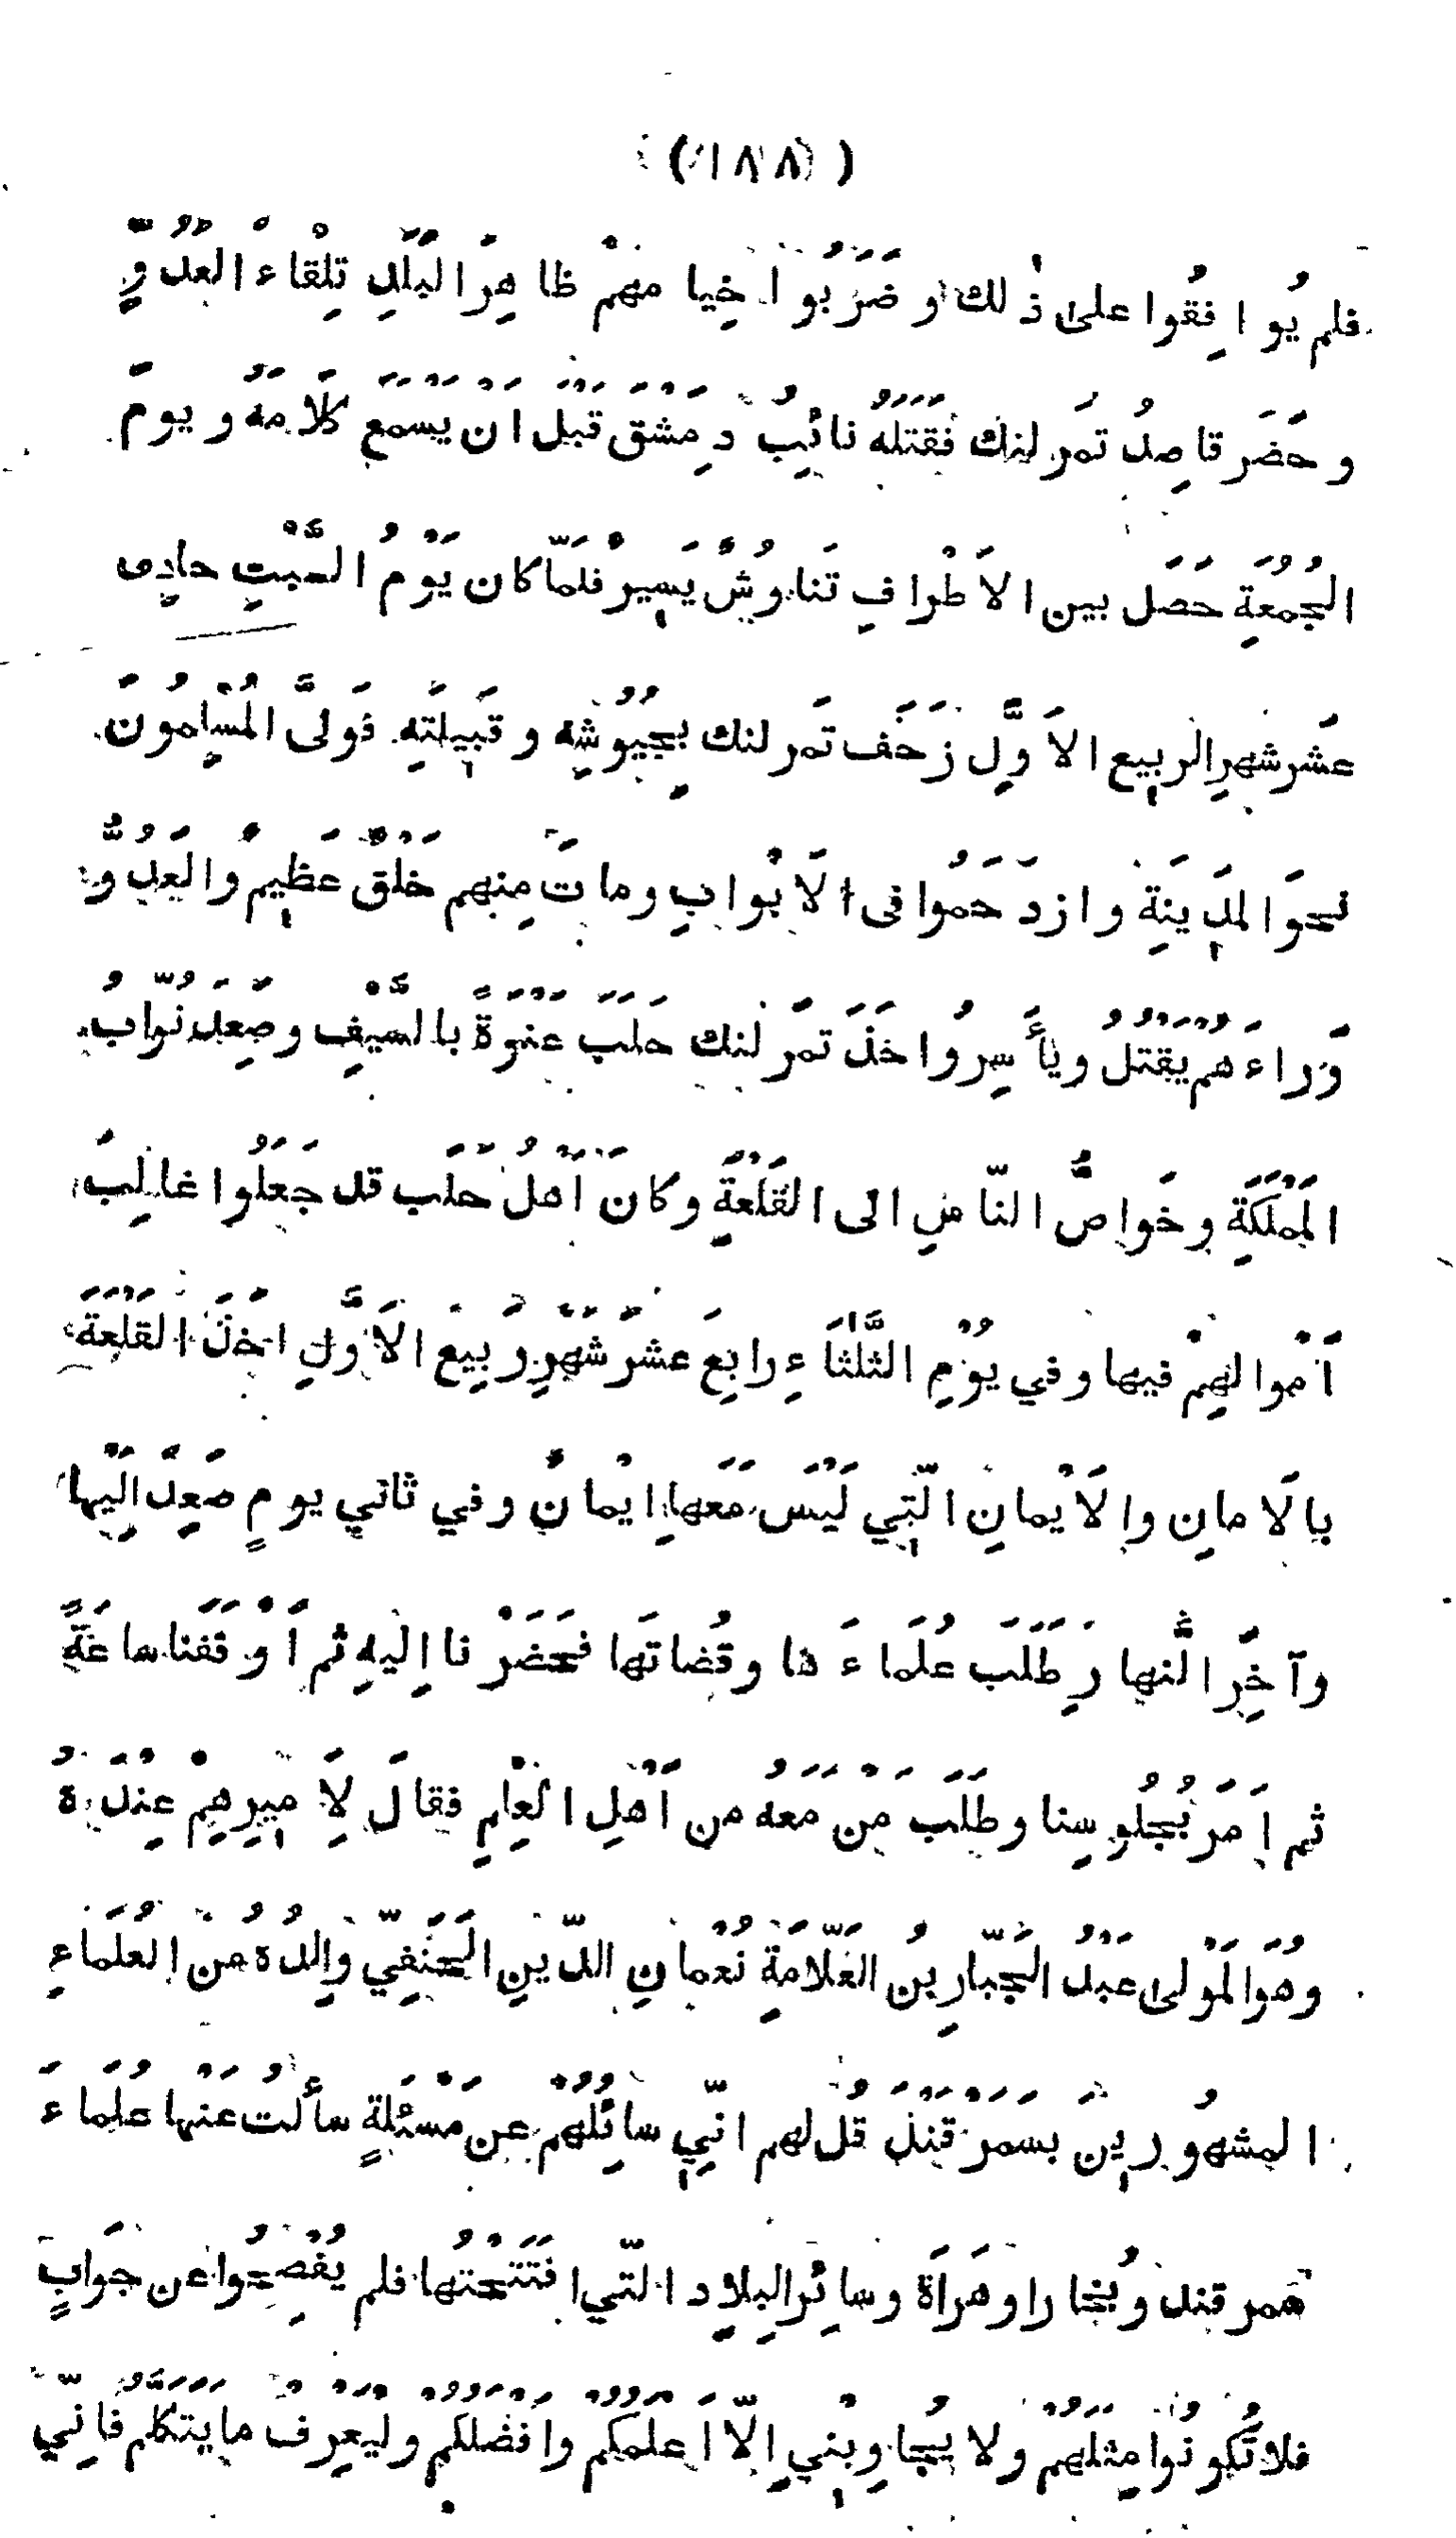 (١٨٨)
فلم يُوافِقُوا علىٰ ذٰلك وضَرَبُوا خِيامهمْ ظاهِرَ البَلَدِ تِلْقاءَ العَدُوِّ
وحَضَر قاصِدُ تَمَرلنك فَقَتَلَهُ نائِبُ دِمَشْقَ قَبْلَ اَنْ يَسْمَعَ كَلَامَهُ ويومَ
الجُمُعَةِ حَصَلَ بين الاَطْرافِ تَناوُشٌ يَسِيرٌ فلمّا كان يَوْمُ السَّبْتِ حادِى
عَشَر شهرِ الربِيع الاَوَّلِ زَحَفَ تَمَرلنك بِجُيُوشِهِ وقَبِيلَتِهِ فَوَلَّى المُسْلِمُونَ
نحوَ المَدِينَةِ وازدَحَمُوا فى الاَبْوابِ وماتَ مِنهم خَلْقٌ عَظِيمٌ والعَدُوُّ
وَراءَهُم يَقْتُلُ ويأْسِرُ واَخَذَ تَمَرلنك حَلَبَ عَنْوَةً بالسَّيْفِ وصَعِدَ نُوّابُ
المَمْلَكَةِ وخَواصُّ النّاسِ الى القَلْعَةِ وكانَ اَهْلُ حَلَبَ قد جَعَلُوا غالِبَ
اَمْوالهِمْ فيها وفي يَوْمِ الثَّلثاءِ رابِعَ عَشَرَ شَهْرِ رَبِيعِ الاَوَّلِ اَخَذَ القَلْعَةَ
بالاَمانِ والاَيْمانِ الّتِي لَيْسَ مَعَها اِيْمانٌ وفي ثاني يومٍ صَعِدَ اِلَيْها
وآخِرَ النّهارِ طَلَبَ عُلَماءَها وقُضاتَها فحَضَرْنا اِليهِ ثم اَوْقَفَنا ساعَةً
ثم اَمَرَ بجُلُوسِنا وطَلَبَ مَن مَعَهُ من اَهْلِ العِلْمِ فقالَ لِاَمِيرِهِمْ عِنْدَهُ
وهُوَ المَوْلىٰ عَبْدُ الجَبّارِ بنُ العَلّامَةِ نُعْمانِ الدّينِ الحَنَفِيّ والِدُهُ مِن العُلَماءِ
المشهُورِين بِسَمَرْقَنْدَ قُل لهم انّي سائِلُهُم عن مَسْئَلَةٍ سأَلْتُ عَنْها عُلَماءَ
سَمرقند وبُخارا وهَراةَ وسائِرِ البِلادِ الّتي افْتَتَحْتُها فلم يُفْصِحُوا عن جَوابٍ
فلا تَكُونُوا مِثلَهُم ولا يُجاوِبْني اِلّا اَعْلَمُكُم واَفْضَلُكُم وليَعرِفْ ما يَتَكَلَّمُ فانّي